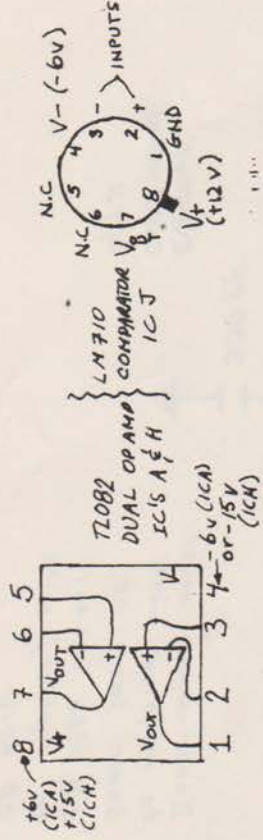 +6V
(ICA)
+15V
(ICH)
8 7 6 5
V+ VOUT
- +
VOUT
- +
V-
1 2 3 4
-6V (ICA)
or -15V
(ICH)
TL082
DUAL OP AMP
IC'S A & H
LM710
COMPARATOR
IC J
N.C
N.C
V- (-6V)
6 5 4
7 3 -
INPUTS
8 1 2 +
GND
V+
(+12V)